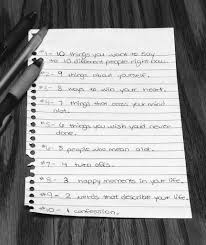 #1- 10 things you want to say
to 10 different people right now.
#2- 9 things about yourself.
#3- 8 ways to win your heart.
#4- 7 things that cross your mind
alot.
#5- 6 things you wish you'd never
done.
#6- 5 people who mean alot.
#7- 4 turn offs.
#8- 3 happy moments in your life.
#9- 2 words that describe your life.
#10- 1 confession.